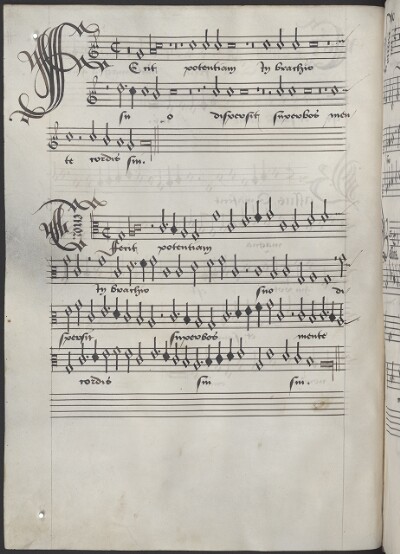 Fecit potentiam In brachio
su o dispersit superbos men
te cordis sui.
Tenor
Fecit potentiam
In brachio suo di
spersit superbos mente
cordis sui sui.